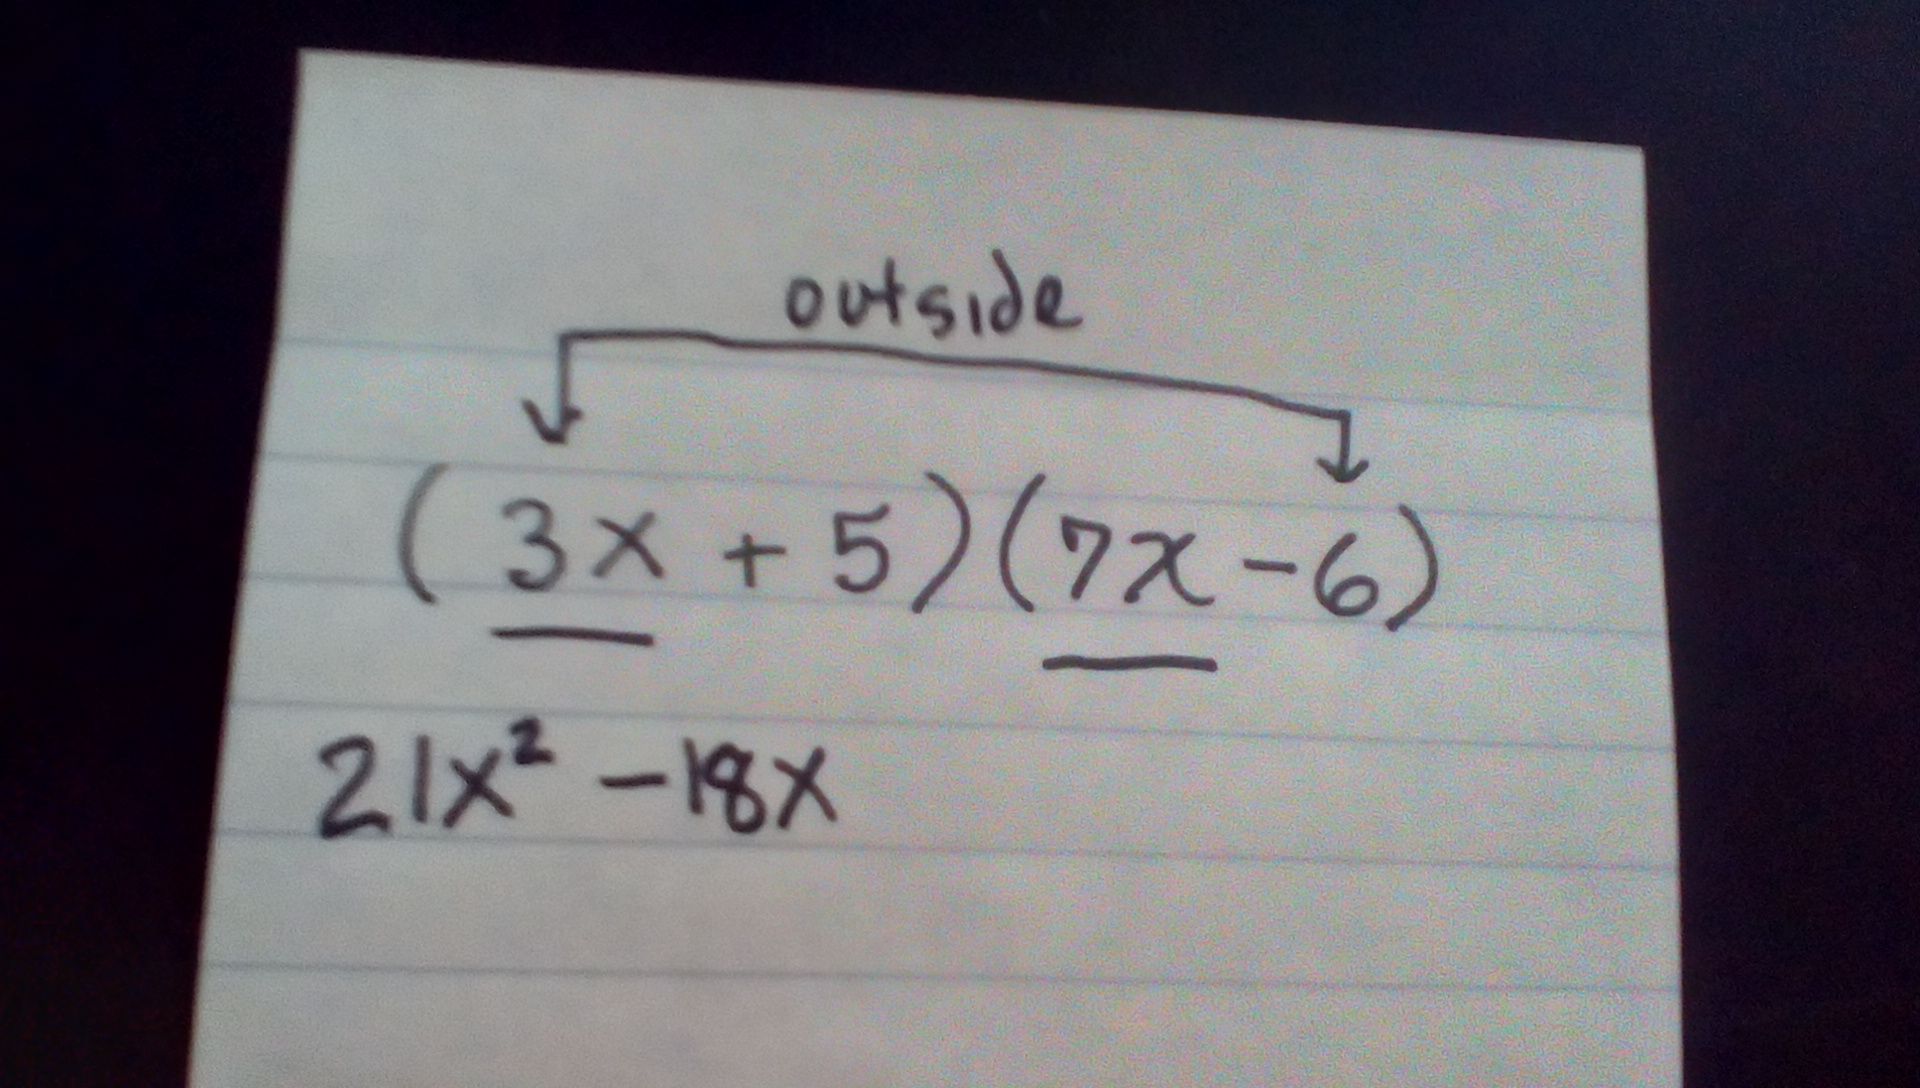 outside
(3x + 5)(7x - 6)
21x² - 18x